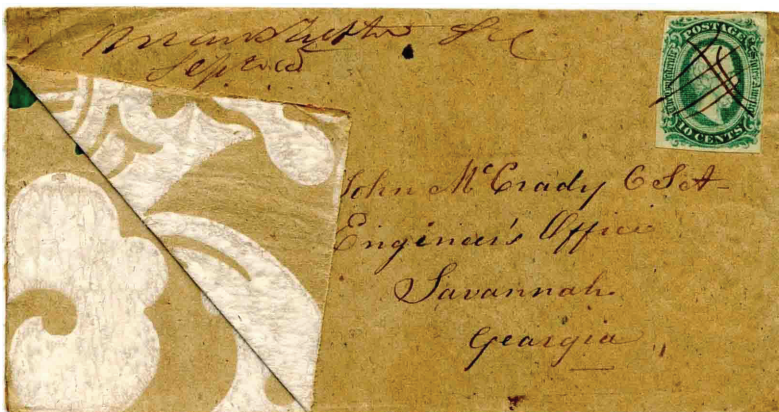 Manchester SC
POSTAGE
10 CENTS
John McCrady CSA
Engineer's Office
Savannah
Georgia